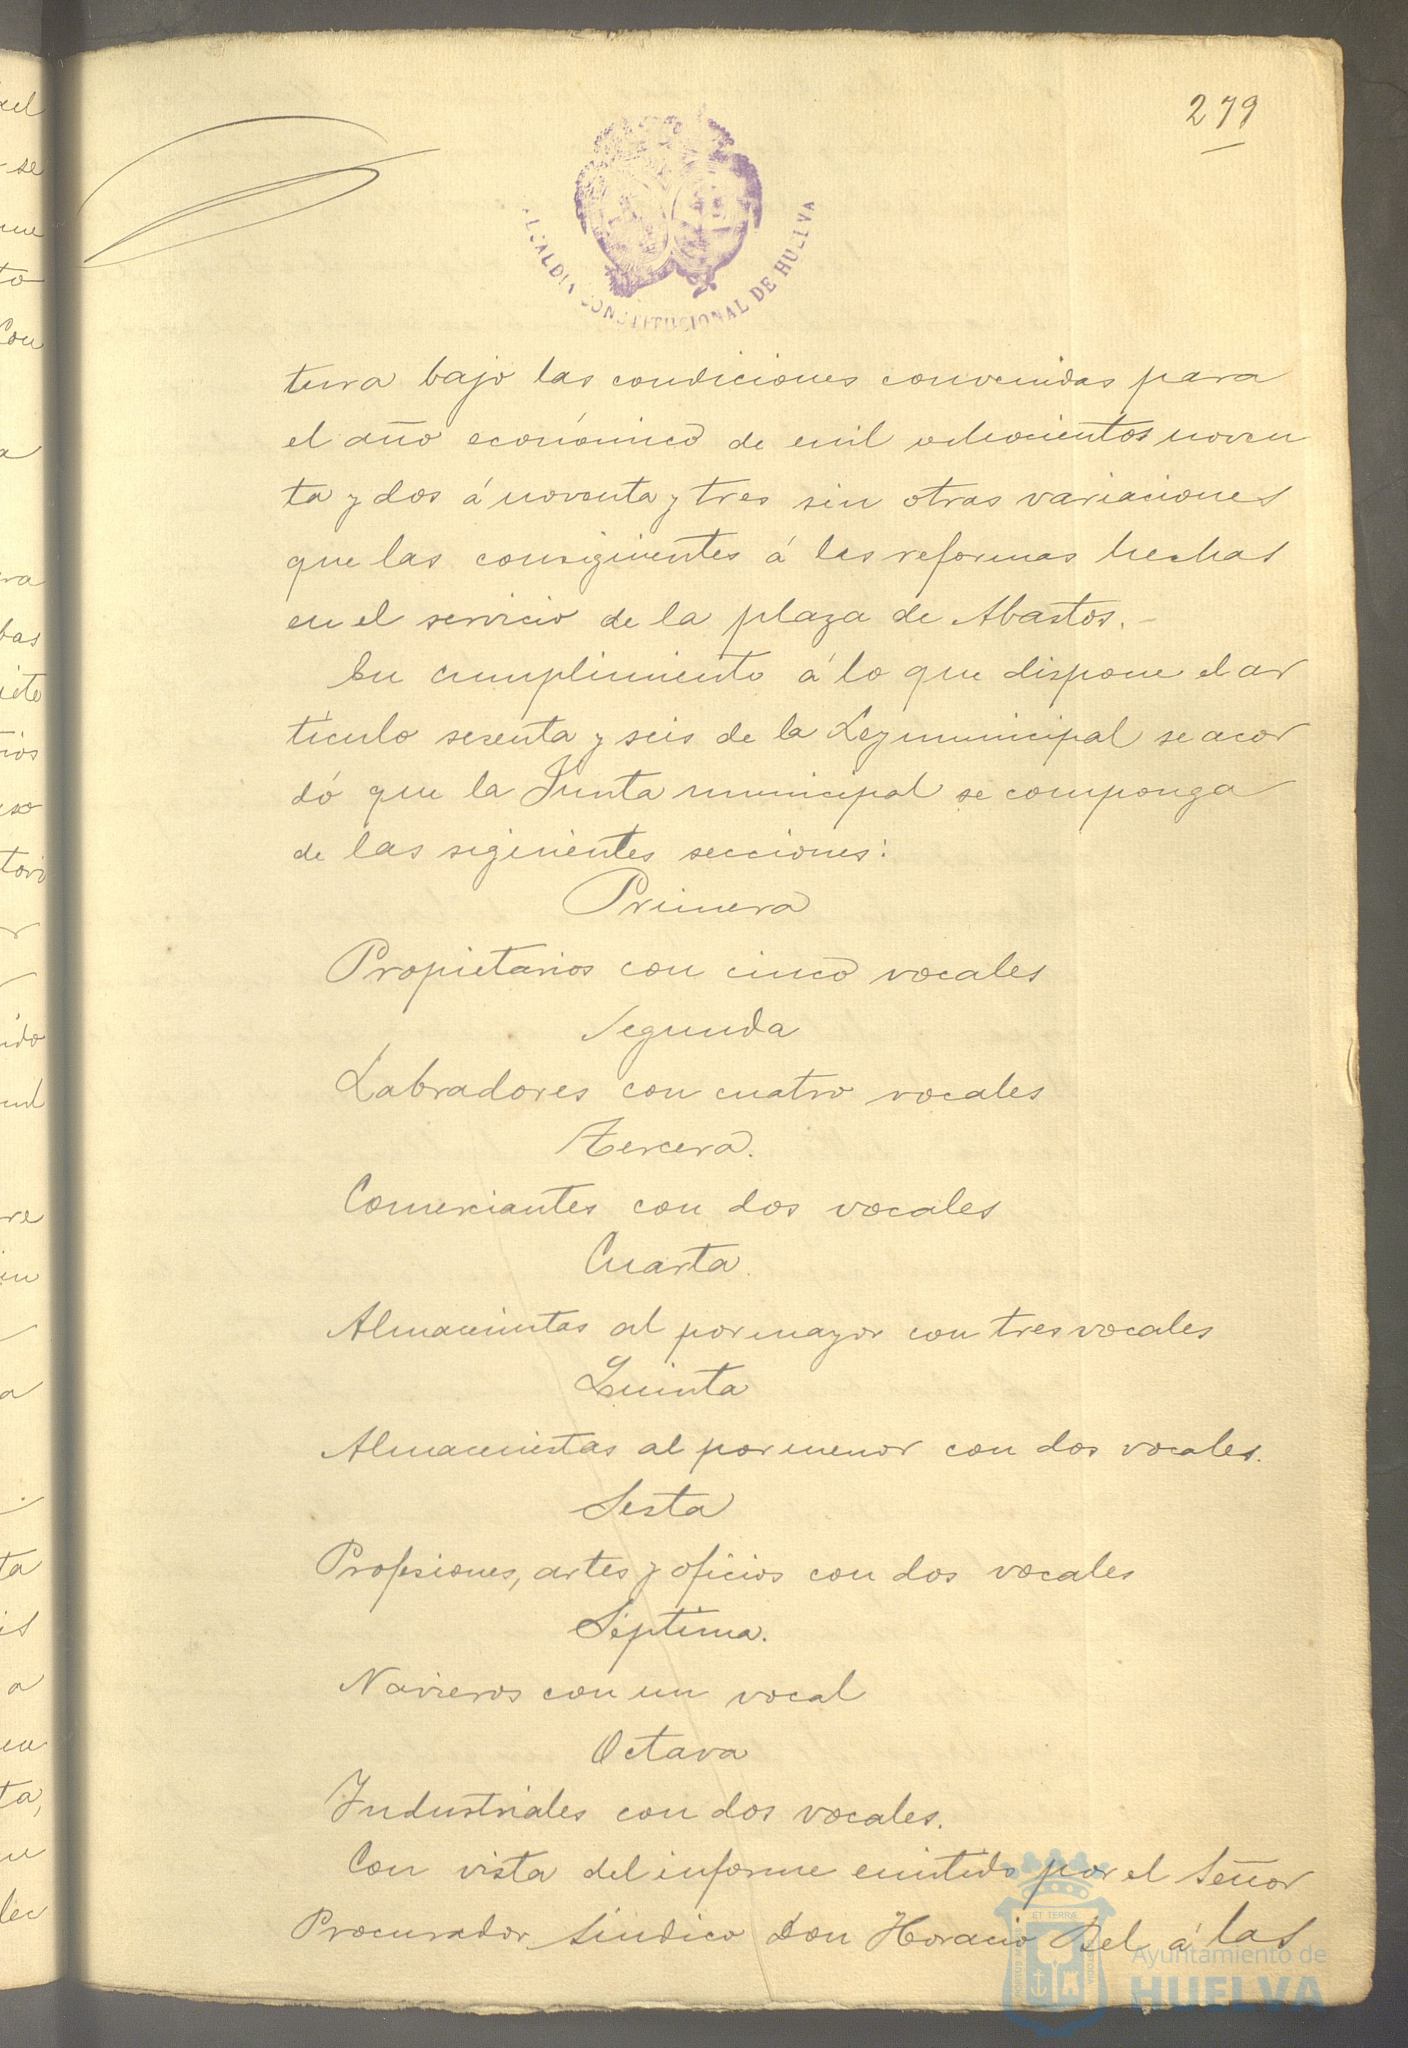 279
ALCALDIA CONSTITUCIONAL DE HUELVA
tura bajo las condiciones convenidas para
el año económico de mil ochocientos noven
ta y dos á noventa y tres sin otras variaciones
que las consiguientes á las reformas hechas
en el servicio de la plaza de Abastos.
En cumplimiento á lo que dispone el ar
tículo sesenta y seis de la Ley municipal se acor
dó que la Junta municipal se componga
de las siguientes secciones:
Primera
Propietarios con cinco vocales
Segunda
Labradores con cuatro vocales
Tercera.
Comerciantes con dos vocales
Cuarta.
Almacenistas al por mayor con tres vocales
Quinta
Almacenistas al por menor con dos vocales.
Sesta
Profesiones, artes y oficios con dos vocales
Séptima.
Navieros con un vocal
Octava
Industriales con dos vocales.
Con vista del informe emitido por el Señor
Procurador Síndico don Horacio Bel á las
Ayuntamiento de
HUELVA